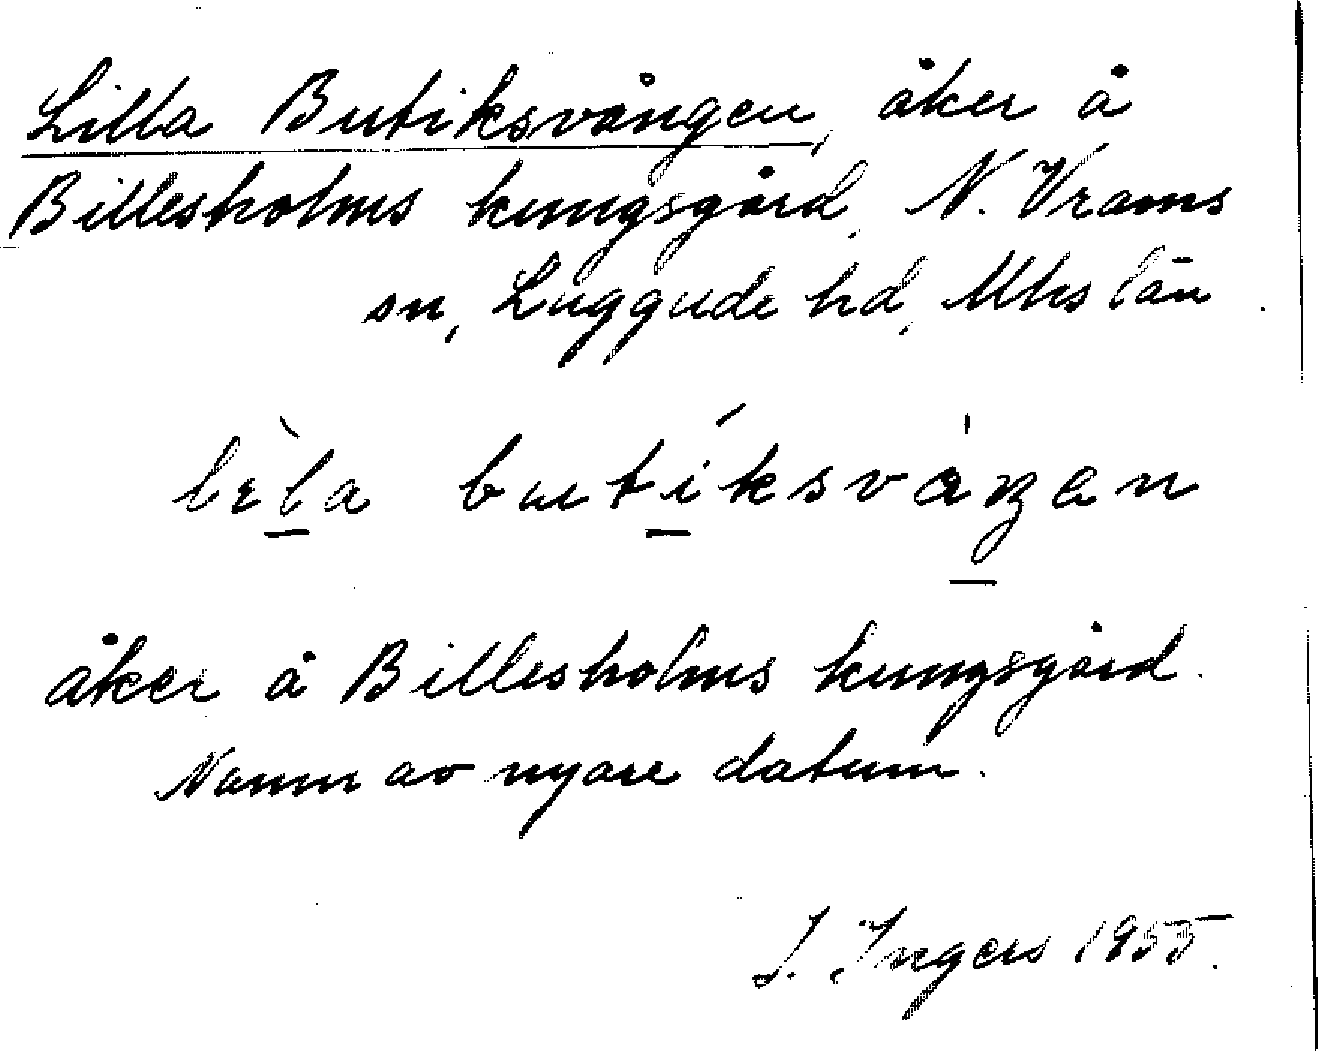 Lilla Butiksvången, åker å
Billesholms kungsgård, N. Vrams
sn, Luggude hd, Mhs län.
butiksvåŋen
åker å Billesholms kungsgård.
Namn av nyare datum.
I. Ingers 1955.